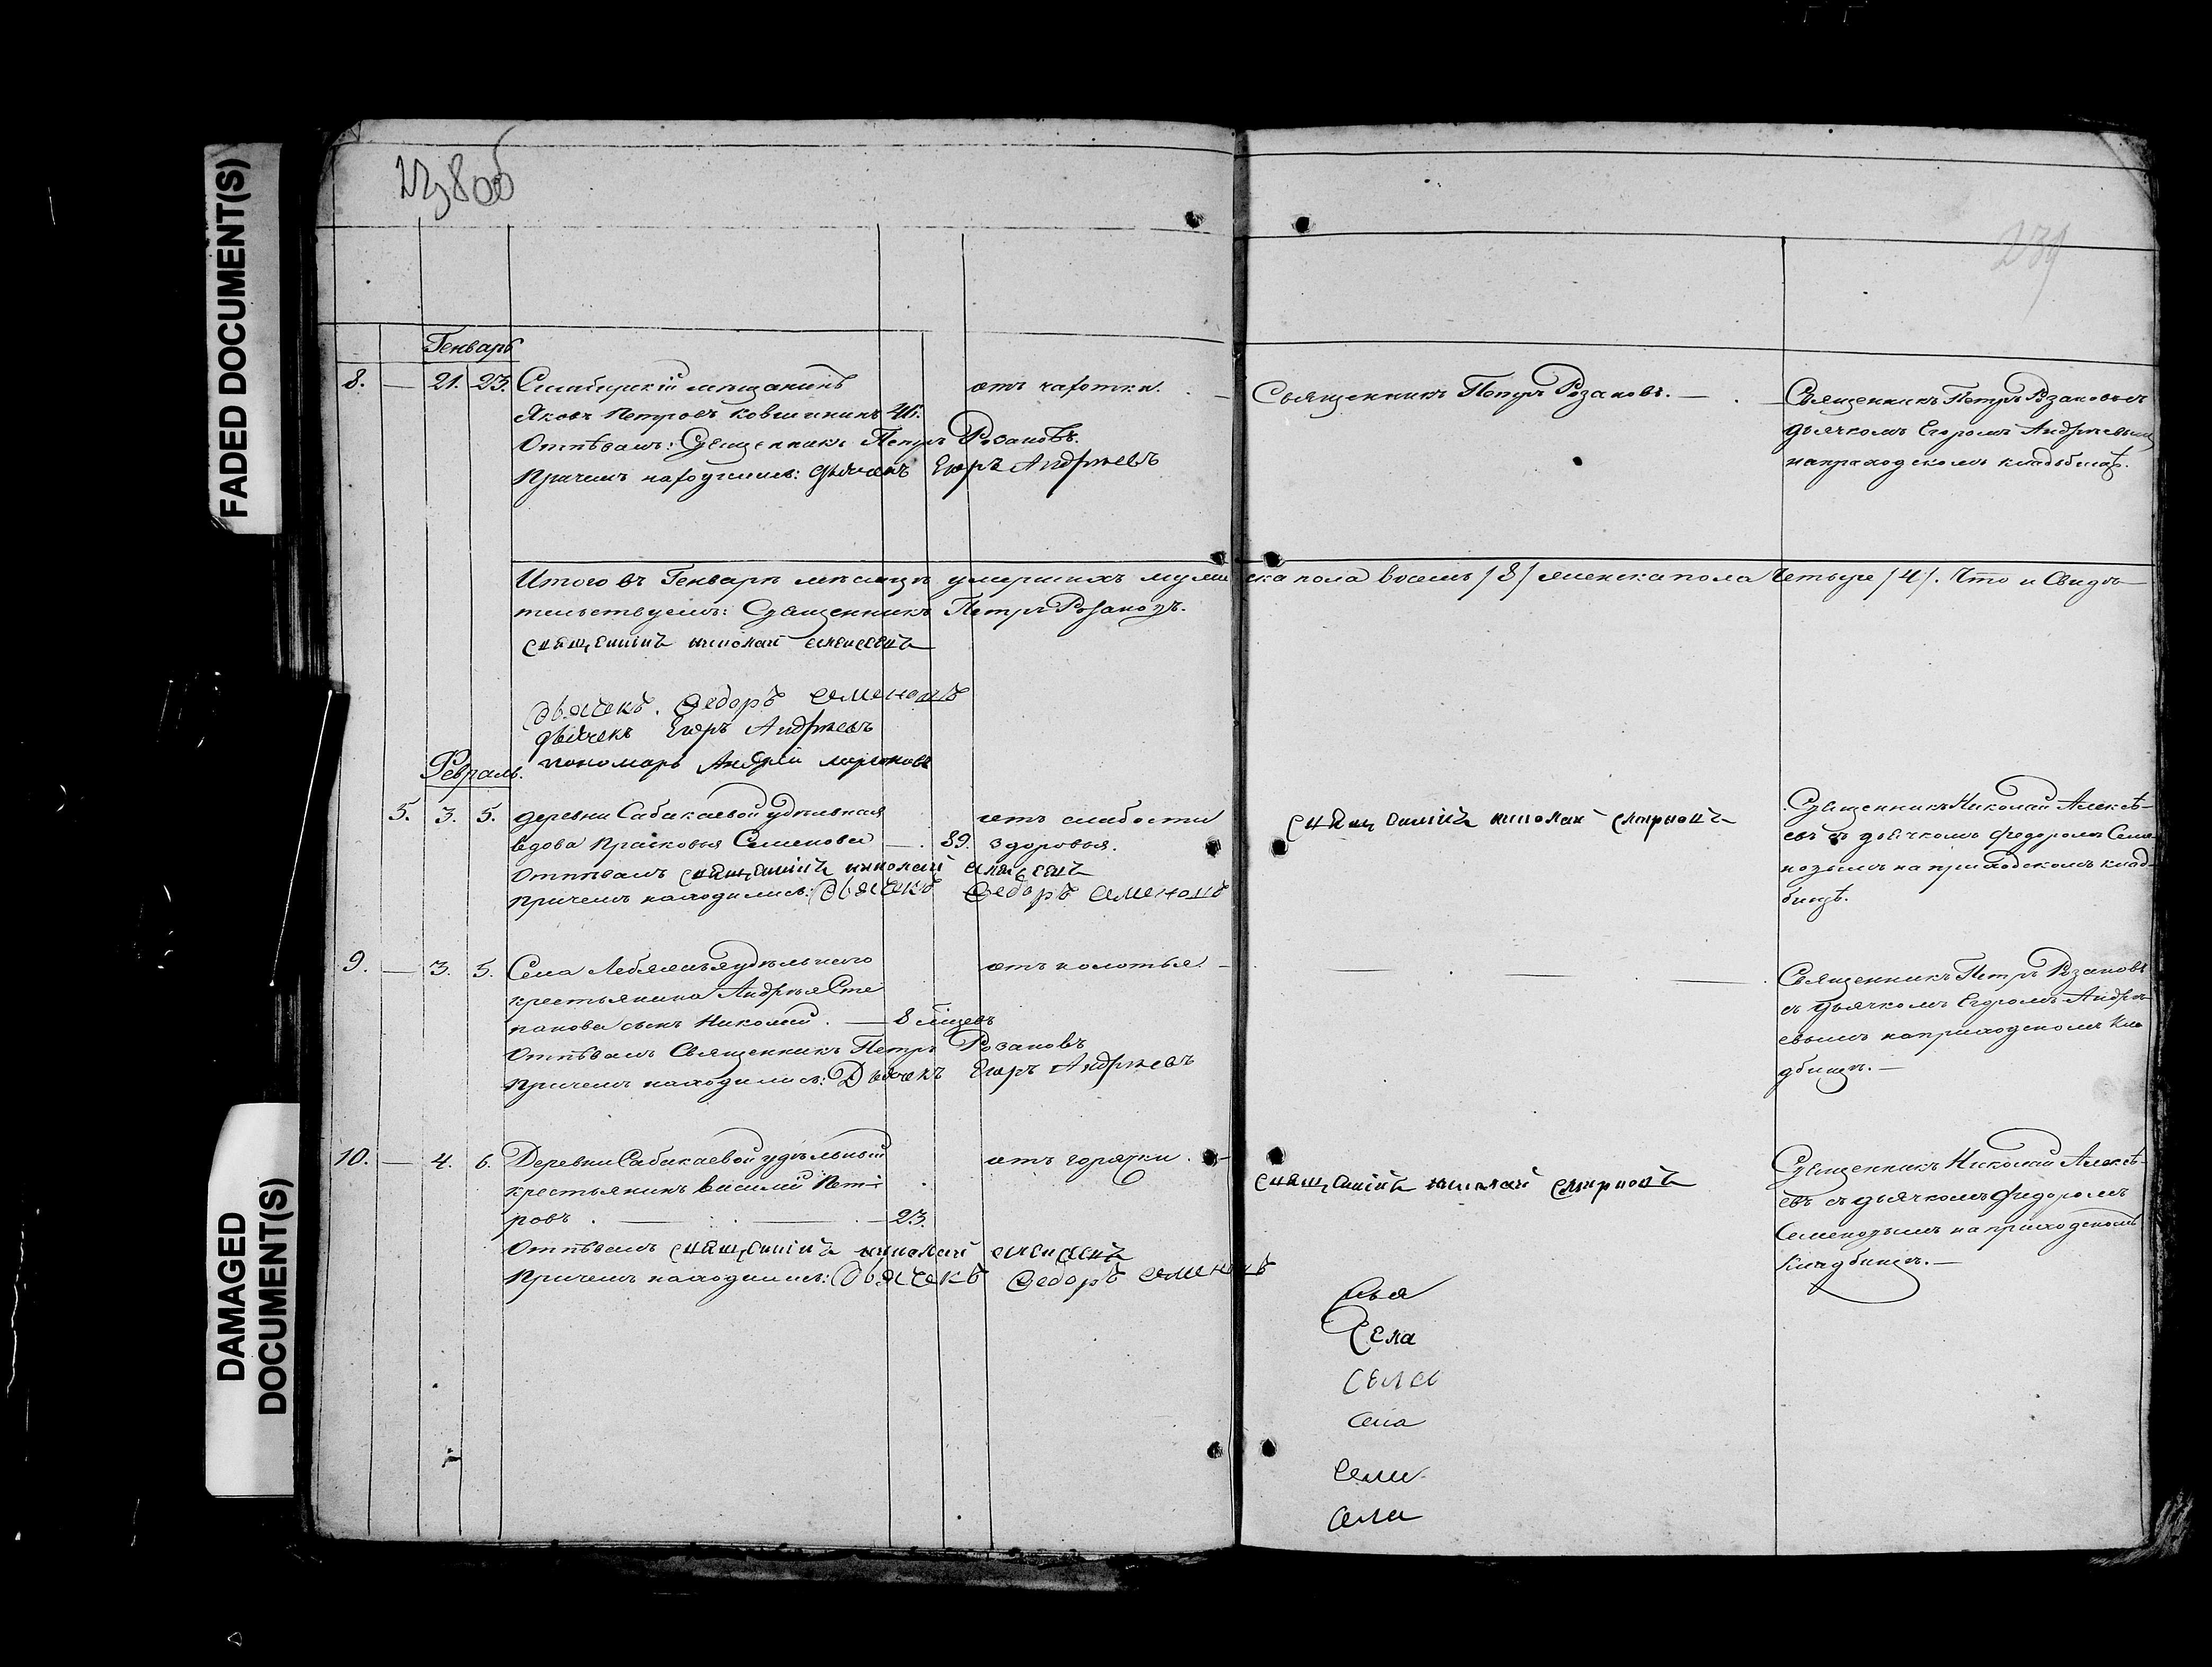 FADED DOCUMENT(S)
DAMAGED DOCUMENT(S)
238об
239
Генварь
8. — 21. 23. Симбирскій мѣщанинъ
Яковъ Петровъ 46. отъ чахотки.
Отпѣвалъ: Священникъ Петръ Розановъ.
Причемъ находились: Дьячекъ Егоръ Андреевъ
Священникъ Петръ Розановъ. —
Священникъ Петръ Розановъ съ
дьячкомъ Егоромъ Андреевымъ
на приходскомъ кладбищѣ.
Итого въ Генварѣ мѣсяцѣ умершихъ мужеска пола восемь /8/ женска пола четыре /4/. Что и Свидѣ-
тельствуемъ: Священникъ Петръ Розановъ.
священникъ николай алексеевъ
дьячекъ. Федоръ семеновъ
дьячекъ Егоръ Андреевъ
пономарь Андрей
Февраль.
5. 3. 5. деревни Сабакаевой удѣльная
вдова Прасковья Семенова — . 89. отъ слабости
здоровья.
Отпѣвалъ священникъ николай алексеевъ
Причемъ находились: дьячекъ Федоръ семеновъ
священникъ николай смирновъ
Священникъ Николай Алексѣ-
евъ съ дьячкомъ Федоромъ Семе-
новымъ на приходскомъ клад-
бищѣ.
9. — 3. 5. Села Лебяжья удѣльнаго
крестьянина Андрея Сте
панова сынъ Николай. — 8 мѣцевъ отъ колотья. —
Отпѣвалъ Священникъ Петръ Розановъ
Причемъ находились: Дьячекъ Егоръ Андреевъ
Священникъ Петръ Розановъ
съ дьячкомъ Егоромъ Андре-
евымъ на приходскомъ кла
дбищѣ. —
10. — 4. 6. Деревни Сабакаевой удѣльный
крестьянинъ Василій Пет-
ровъ . — . — . — 23. отъ горячки. —
Отпѣвалъ священникъ николай алексеевъ
Причемъ находились: дьячекъ Федоръ семеновъ
священникъ николай смирновъ
Священникъ Николай Алексѣ-
евъ съ дьячкомъ Федоромъ
Семеновымъ на приходскомъ
кладбищѣ. —
Села
села
села
села